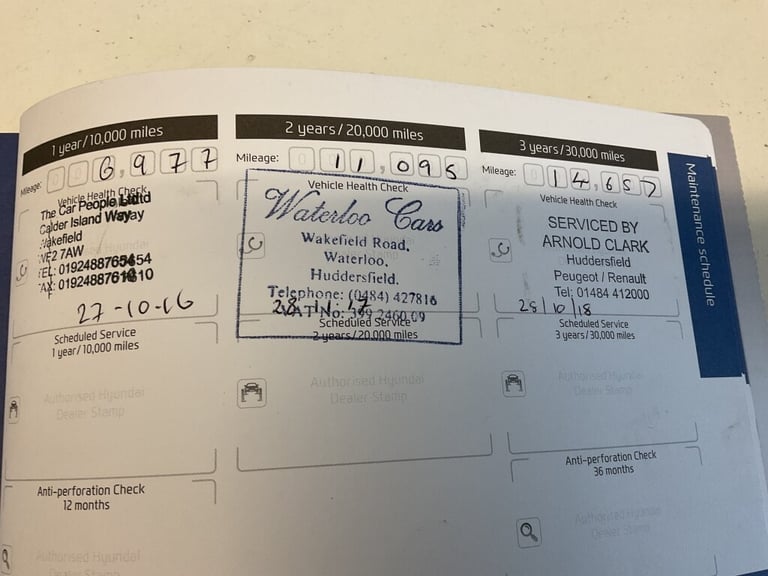 1 year/10,000 miles
Mileage: 0 0 6,9 7 7
Vehicle Health Check
The Car People Ltd
Calder Island Way
Wakefield
WF2 7AW
TEL: 01924887654
FAX: 01924887610
27-10-16
Scheduled Service
1 year/10,000 miles
Authorised Hyundai
Dealer Stamp
Anti-perforation Check
12 months
Authorised Hyundai
Dealer Stamp
2 years/20,000 miles
Mileage: 0 1 1,0 9 5
Vehicle Health Check
Waterloo Cars
Wakefield Road,
Waterloo,
Huddersfield.
Telephone: (0484) 427816
VAT No: 399 2460 09
28 11 17
Scheduled Service
2 years/20,000 miles
Authorised Hyundai
Dealer Stamp
3 years/30,000 miles
Mileage: 0 1 4,6 5 7
Vehicle Health Check
SERVICED BY
ARNOLD CLARK
Huddersfield
Peugeot / Renault
Tel: 01484 412000
28/10/18
Scheduled Service
3 years/30,000 miles
Authorised Hyundai
Dealer Stamp
Anti-perforation Check
36 months
Authorised Hyundai
Dealer Stamp
Maintenance schedule